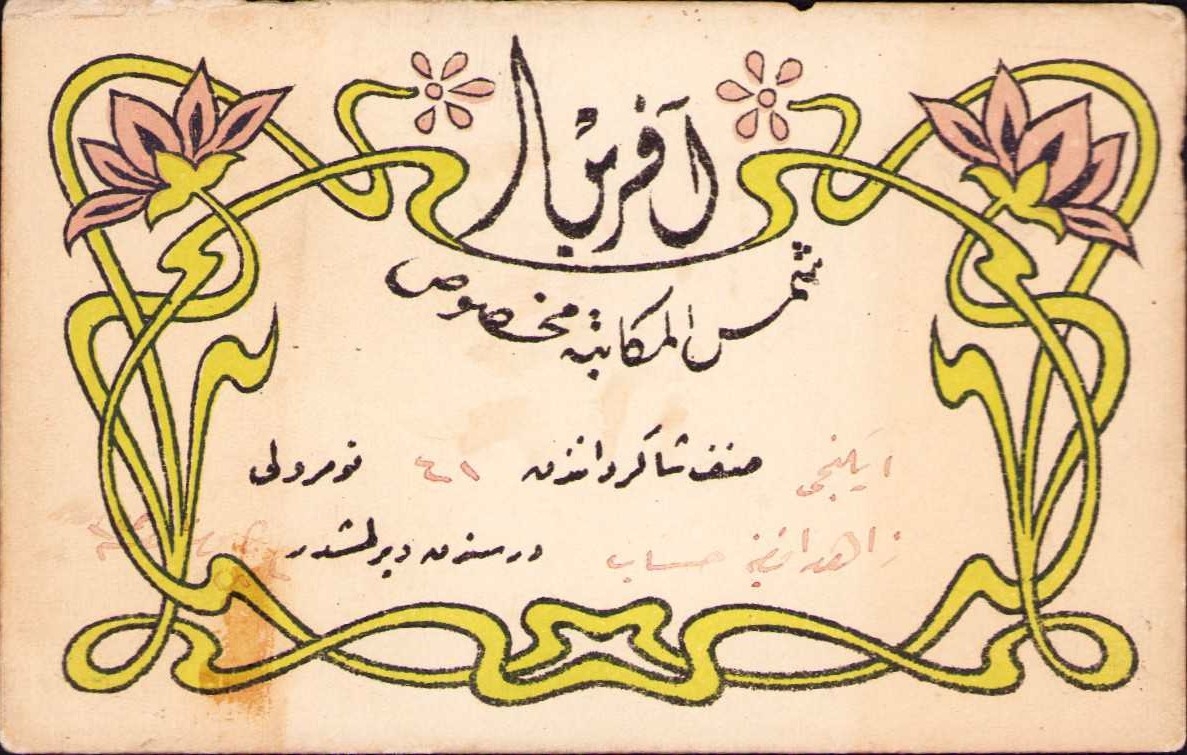 آفرین
شمس المكاتبه مخصوص
ایكنجی صنف شاكردانندن ٤١ نومرولی
زاهد افندیه حساب درسندن ویرلمشدر